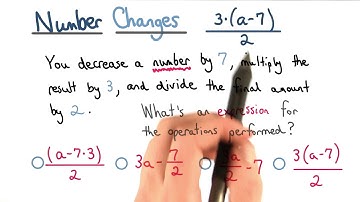 Number Changes
3·(a-7)
2
You decrease a number by 7, multiply the
result by 3, and divide the final amount
by 2.
What's an expression for
the operations performed?
(a-7·3)
2
3a-
7
2
a
2
-7
3(a-7)
2